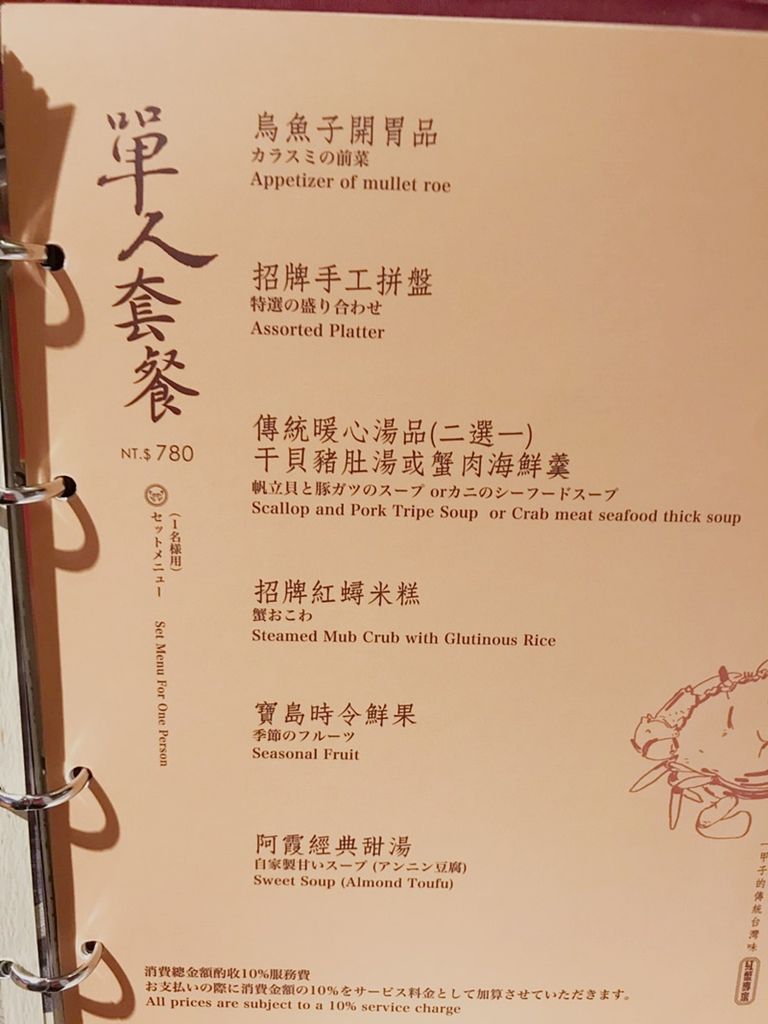 單人套餐
NT.$ 780
(1名様用)
セットメニュー Set Menu For One Person
烏魚子開胃品
カラスミの前菜
Appetizer of mullet roe
招牌手工拼盤
特選の盛り合わせ
Assorted Platter
傳統暖心湯品(二選一)
干貝豬肚湯或蟹肉海鮮羹
帆立貝と豚ガツのスープ orカニのシーフードスープ
Scallop and Pork Tripe Soup or Crab meat seafood thick soup
招牌紅蟳米糕
蟹おこわ
Steamed Mub Crub with Glutinous Rice
寶島時令鮮果
季節のフルーツ
Seasonal Fruit
阿霞經典甜湯
自家製甘いスープ (アンニン豆腐)
Sweet Soup (Almond Toufu)
一甲子的傳統台灣味
消費總金額酌收10%服務費
お支払いの際に消費金額の10%をサービス料金として加算させていただきます。
All prices are subject to a 10% service charge